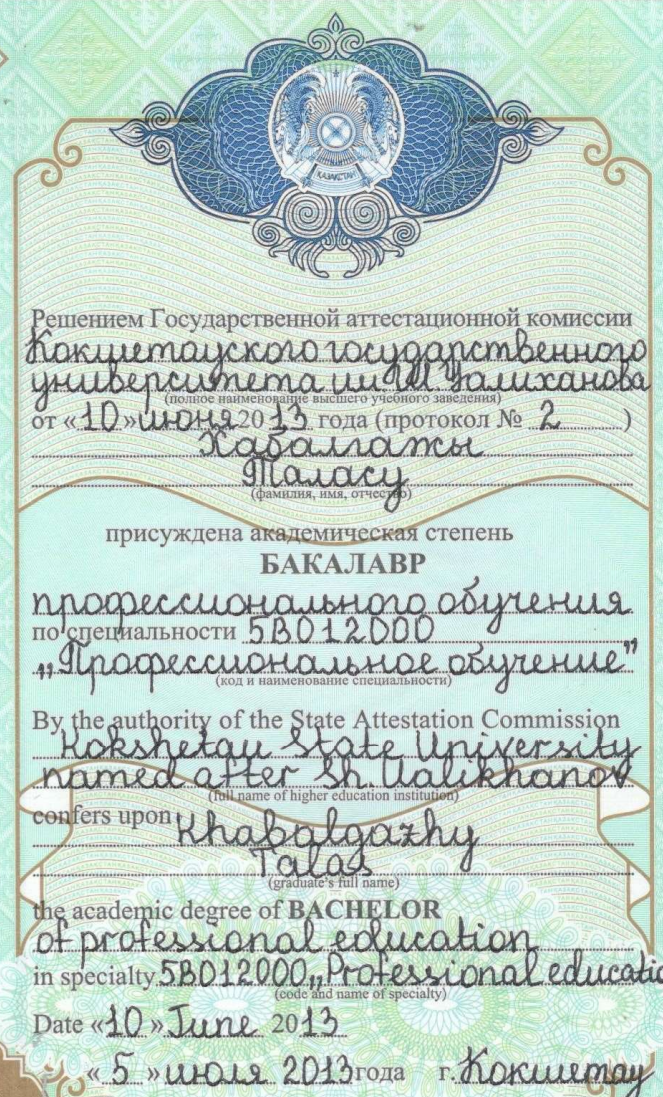 ҚАЗАҚСТАН
Решением Государственной аттестационной комиссии
Кокшетауского государственного
университета им. Ш. Уалиханова
(полное наименование высшего учебного заведения)
от «10» июня 2013 года (протокол № 2 )
Хабалгажы
Таласу
(фамилия, имя, отчество)
присуждена академическая степень
БАКАЛАВР
профессионального обучения
по специальности 5В012000
„Профессиональное обучение”
(код и наименование специальности)
By the authority of the State Attestation Commission
Kokshetau State University
named after Sh. Ualikhanov
(full name of higher education institution)
confers upon Khabalgazhy
Talas
(graduate's full name)
the academic degree of BACHELOR
of professional education
in specialty 5B012000 „Professional educatio
(code and name of specialty)
Date «10» June 2013
«5» июля 2013 года г. Кокшетау